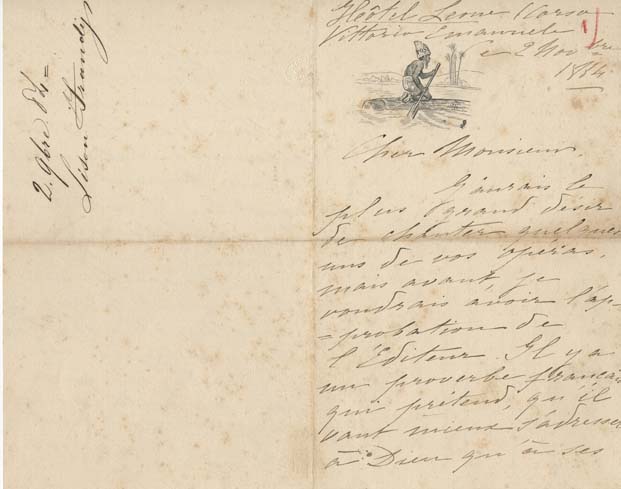 2. 9bre 84 =
Lison Frandin
Hôtel Leone (Corso
Vittorio Emanuele
ce 2 Novbre
1884
Cher Monsieur,
J'aurais le
plus grand désir
de chanter quelques
uns de vos opéras,
mais avant, je
voudrais avoir l'ap-
=probation de
l'Éditeur. Il y a
un proverbe français
qui prétend, qu'il
vaut mieux s'adresser
à Dieu qu'à ses